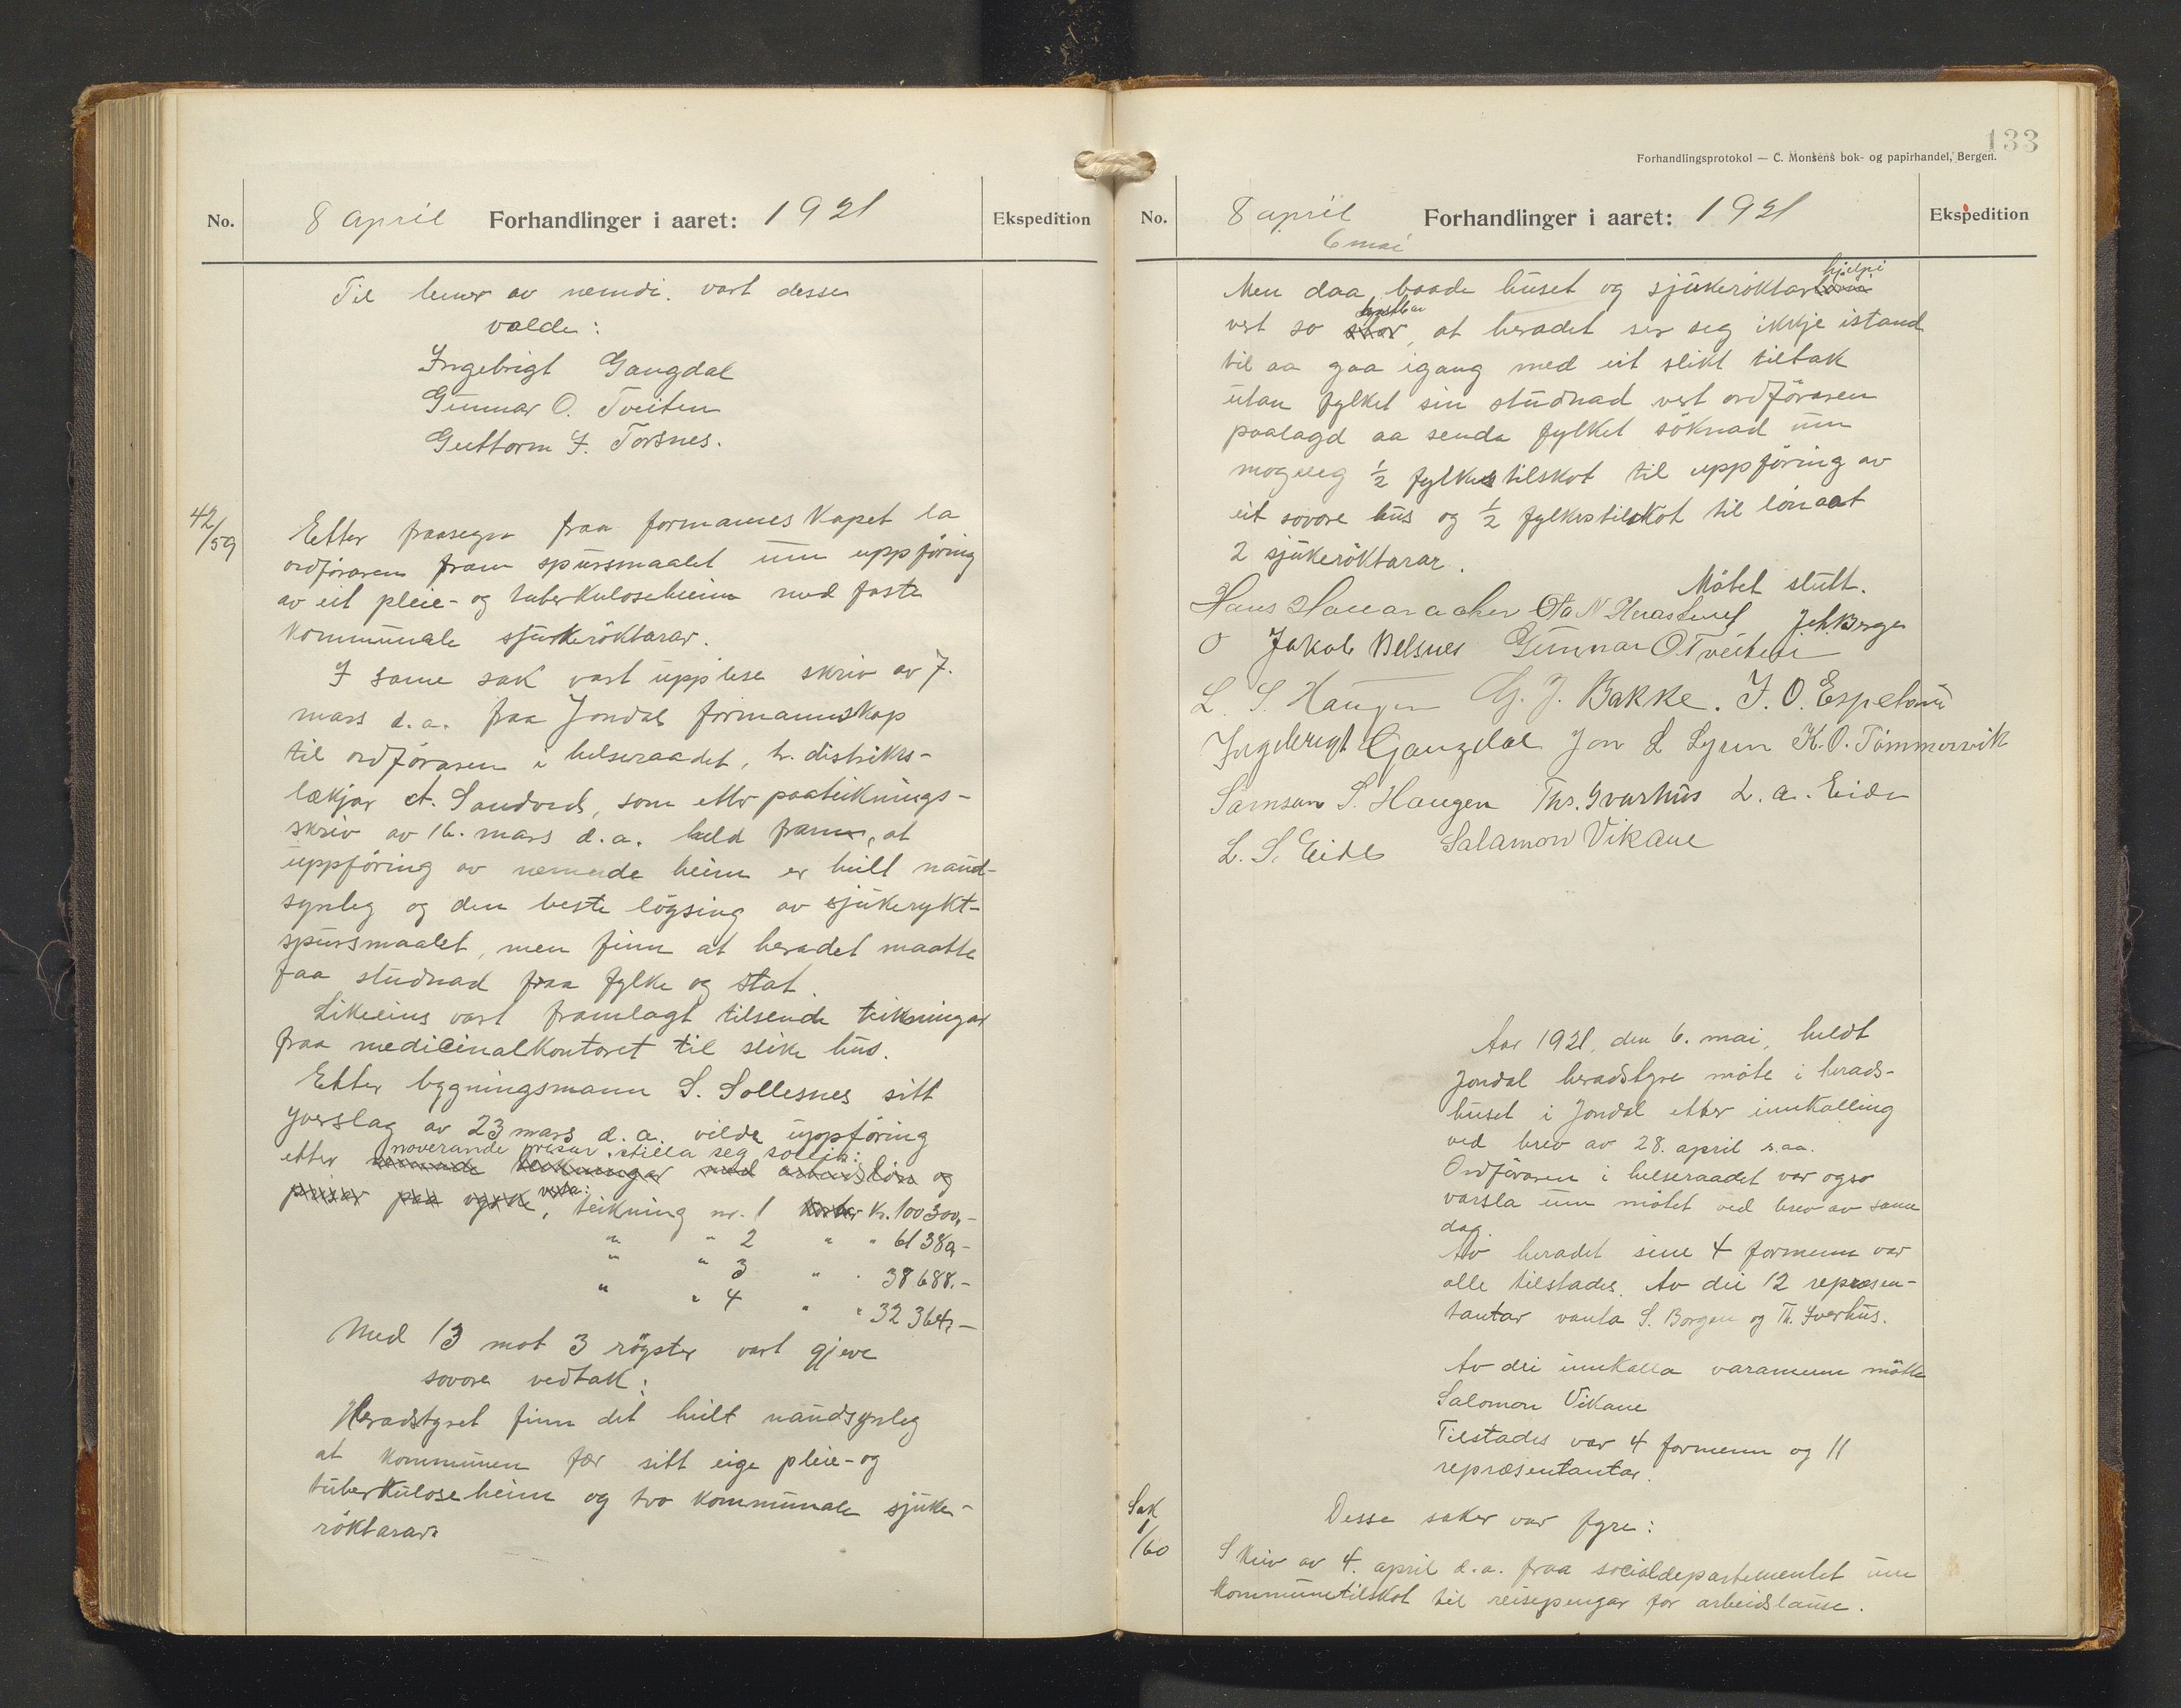 No.
8 april Forhandlinger i aaret: 1921
Ekspedition
Til lemer av nemdi vart desse
valde:
Ingebrigt Gangdal
Gunnar O. Tveiten
Guttorm I. Torsnes.
42/59
Etter fraasegn fraa formannskapet la
ordföraren fram spursmaalet um uppföring
av eit pleie- og tuberkuloseheim med faste
kommunale sjukeröktarar.
I same sak vart upplese skriv av 7.
mars d.a. fraa Jondal formannskap
til ordföraren i helseraadet, hr. distrikts-
lækjar A. Sandved, som etter paateiknings-
skriv av 16. mars d.a. held fram, at
uppföring av nemnde heim er heilt naud-
synleg og den beste löysing av sjukerykt-
spursmaalet, men finn at heradet maatte
faa studnad fraa fylke og stat.
Likeeins vart framlagt tilsende teikningar
fraa medicinalkontoret til slike hus.
Etter bygningsmann S. Sollesnes sitt
yverslag av 23 mars d.a. vilde uppföring
noverande prisar stilla seg soleis:
etter nemnde teikningar med arbeidslön og
prisar paa
verta:
, teikning nr. 1 koster kr. 100300,-
" " 2 " " 61380,-
" " 3 " " 38688.-
" " 4 " " 32364,-
Med 13 mot 3 röyster vart gjeve
sovore vedtak:
Heradstyret finn det heilt naudsynleg
at kommunen fær sitt eige pleie- og
tuberkuloseheim og tvo kommunale sjuke-
röktarar.
133
Forhandlingsprotokol — C. Monsens bok- og papirhandel, Bergen.
No.
8 april Forhandlinger i aaret: 1921
Ekspedition
6 mai
hjelpi
Men daa baade huset og sjukeröktar
kostbar
vert so stor, at heradet ser seg ikkje istand
til aa gaa igang med eit slikt tiltak
utan fylket sin studnad vert ordföraren
paalagd aa senda fylket söknad um
mogeleg ½ fylkestilskot til uppföring av
eit sovore hus og ½ fylkestilskot til lön aat
2 sjukeröktarar.
Mötet slutt.
Hans
Joh. Berge
Jakob Belsnes Gunnar O. Tveiten
L. S. Haugen G. J. Bakke. J. O. Espeland
Ingebrigt Gangdal Jon L Lyen K. O. Tömmervik
Samson S. Haugen Ths. Ivarhus L. A. Eide
L. S. Eide Salamon Vikane
Aar 1921, den 6. mai, heldt
Jondal heradstyre möte i herads-
huset i Jondal etter innkalling
ved brev av 28. april s.aa.
Ordföraren i helseraadet var ogso
varsla um mötet ved brev av same
dag.
Av heradet sine 4 formenn var
alle tilstades. Av dei 12 represen-
tantar vanta S. Borgen og Th. Iverhus.
Av dei innkalla varamenn mötte
Salomon Vikane
Tilstades var 4 formenn og 11
representantar.
Desse saker var fyre:
Sak
1/60
Skriv av 4. april d.a. fraa socialdepartementet um
kommunetilskot til reisepengar for arbeidslause.